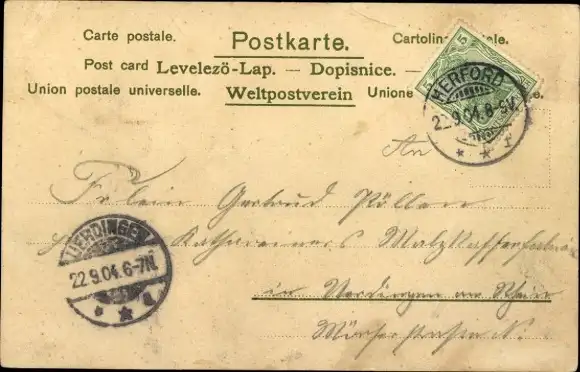 Carte postale. Postkarte. Cartolina
Post card Levelezö-Lap. — Dopisnice. —
Union postale universelle. Weltpostverein Unione
5
HERFORD
22.9.04.8-9V.
An
Gertrud
Kathreiners Malzkaffeefabrik
UERDINGEN
22.9.04.6-7N.
in Uerdingen am Rhein